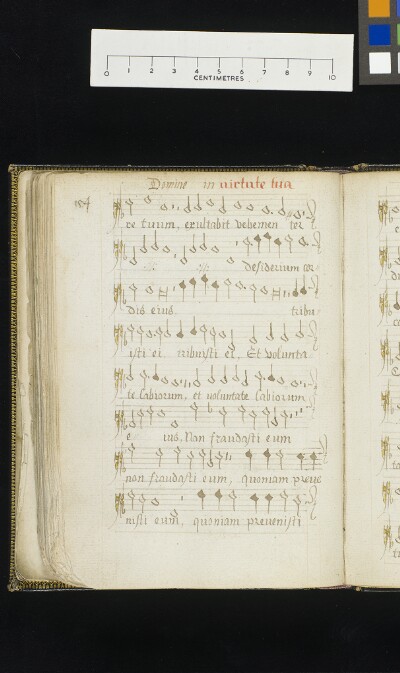 0 1 2 3 4 5 6 7 8 9 10
CENTIMETRES
Domine in virtute tua
re tuum, exultabit vehemen ter
:/: :/: desiderium cor
dis eius tribu
isti ei tribuisti ei, Et volunta
te labiorum, et voluntate labiorum
e ius. Non fraudasti eum
non fraudasti eum, quoniam preve
nisti eum, quoniam prevenisti